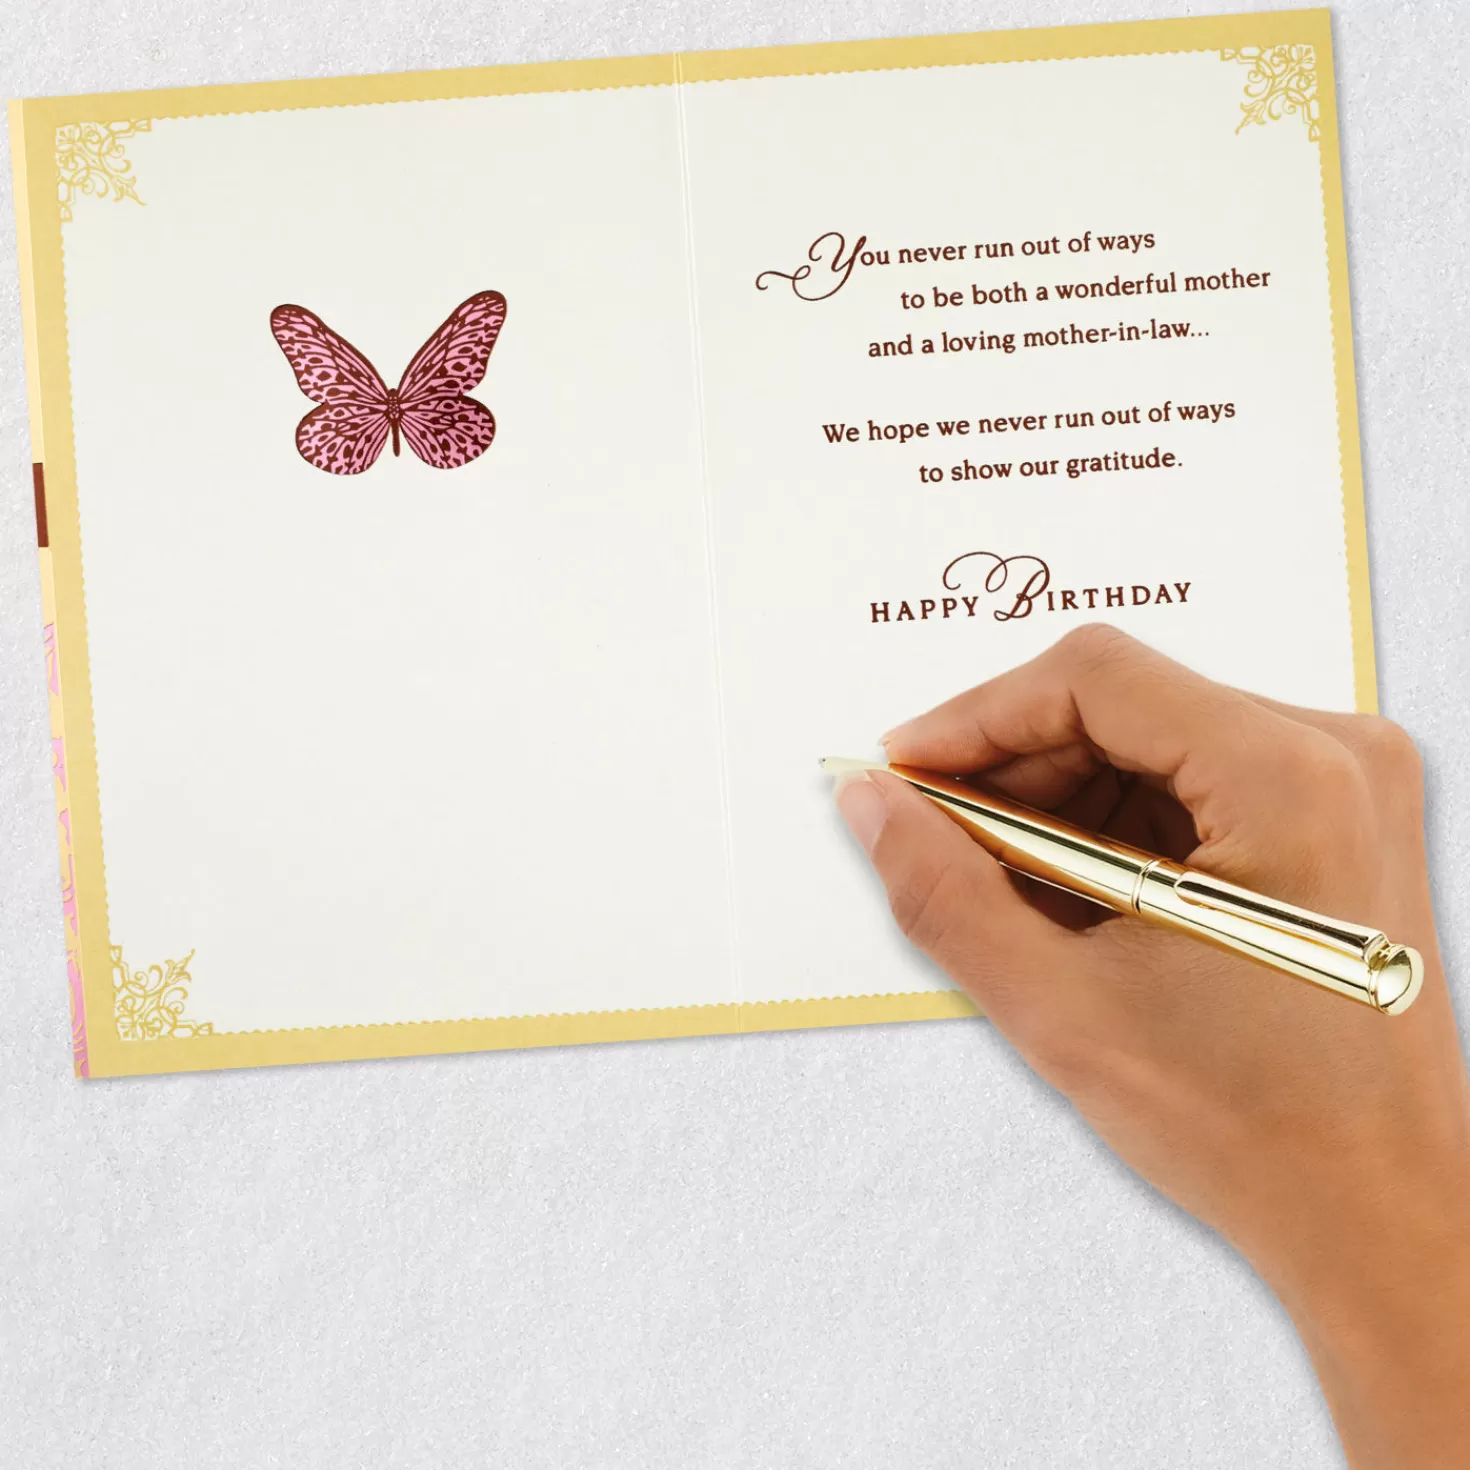 You never run out of ways
to be both a wonderful mother
and a loving mother-in-law...
We hope we never run out of ways
to show our gratitude.
HAPPY BIRTHDAY